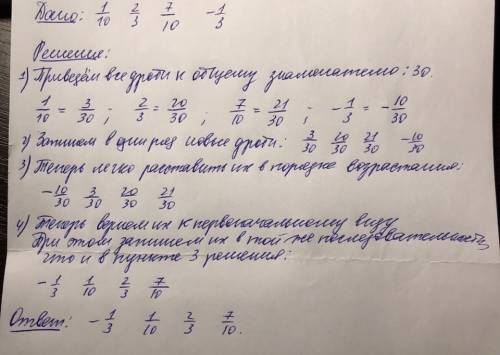 Дано: 1/10 2/3 7/10 -1/3
Решение:
1) Приведём все дроби к общему знаменателю: 30.
1/10 = 3/30 ; 2/3 = 20/30 ; 7/10 = 21/30 ; -1/3 = -10/30
2) Запишем в один ряд новые дроби: 3/30 20/30 21/30 -10/30
3) Теперь легко расставить их в порядке возрастания:
-10/30 3/30 20/30 21/30
4) Теперь вернем их к первоначальному виду
При этом запишем их в той же последовательности,
что и в пункте 3 решения:
-1/3 1/10 2/3 7/10
Ответ: -1/3 1/10 2/3 7/10.